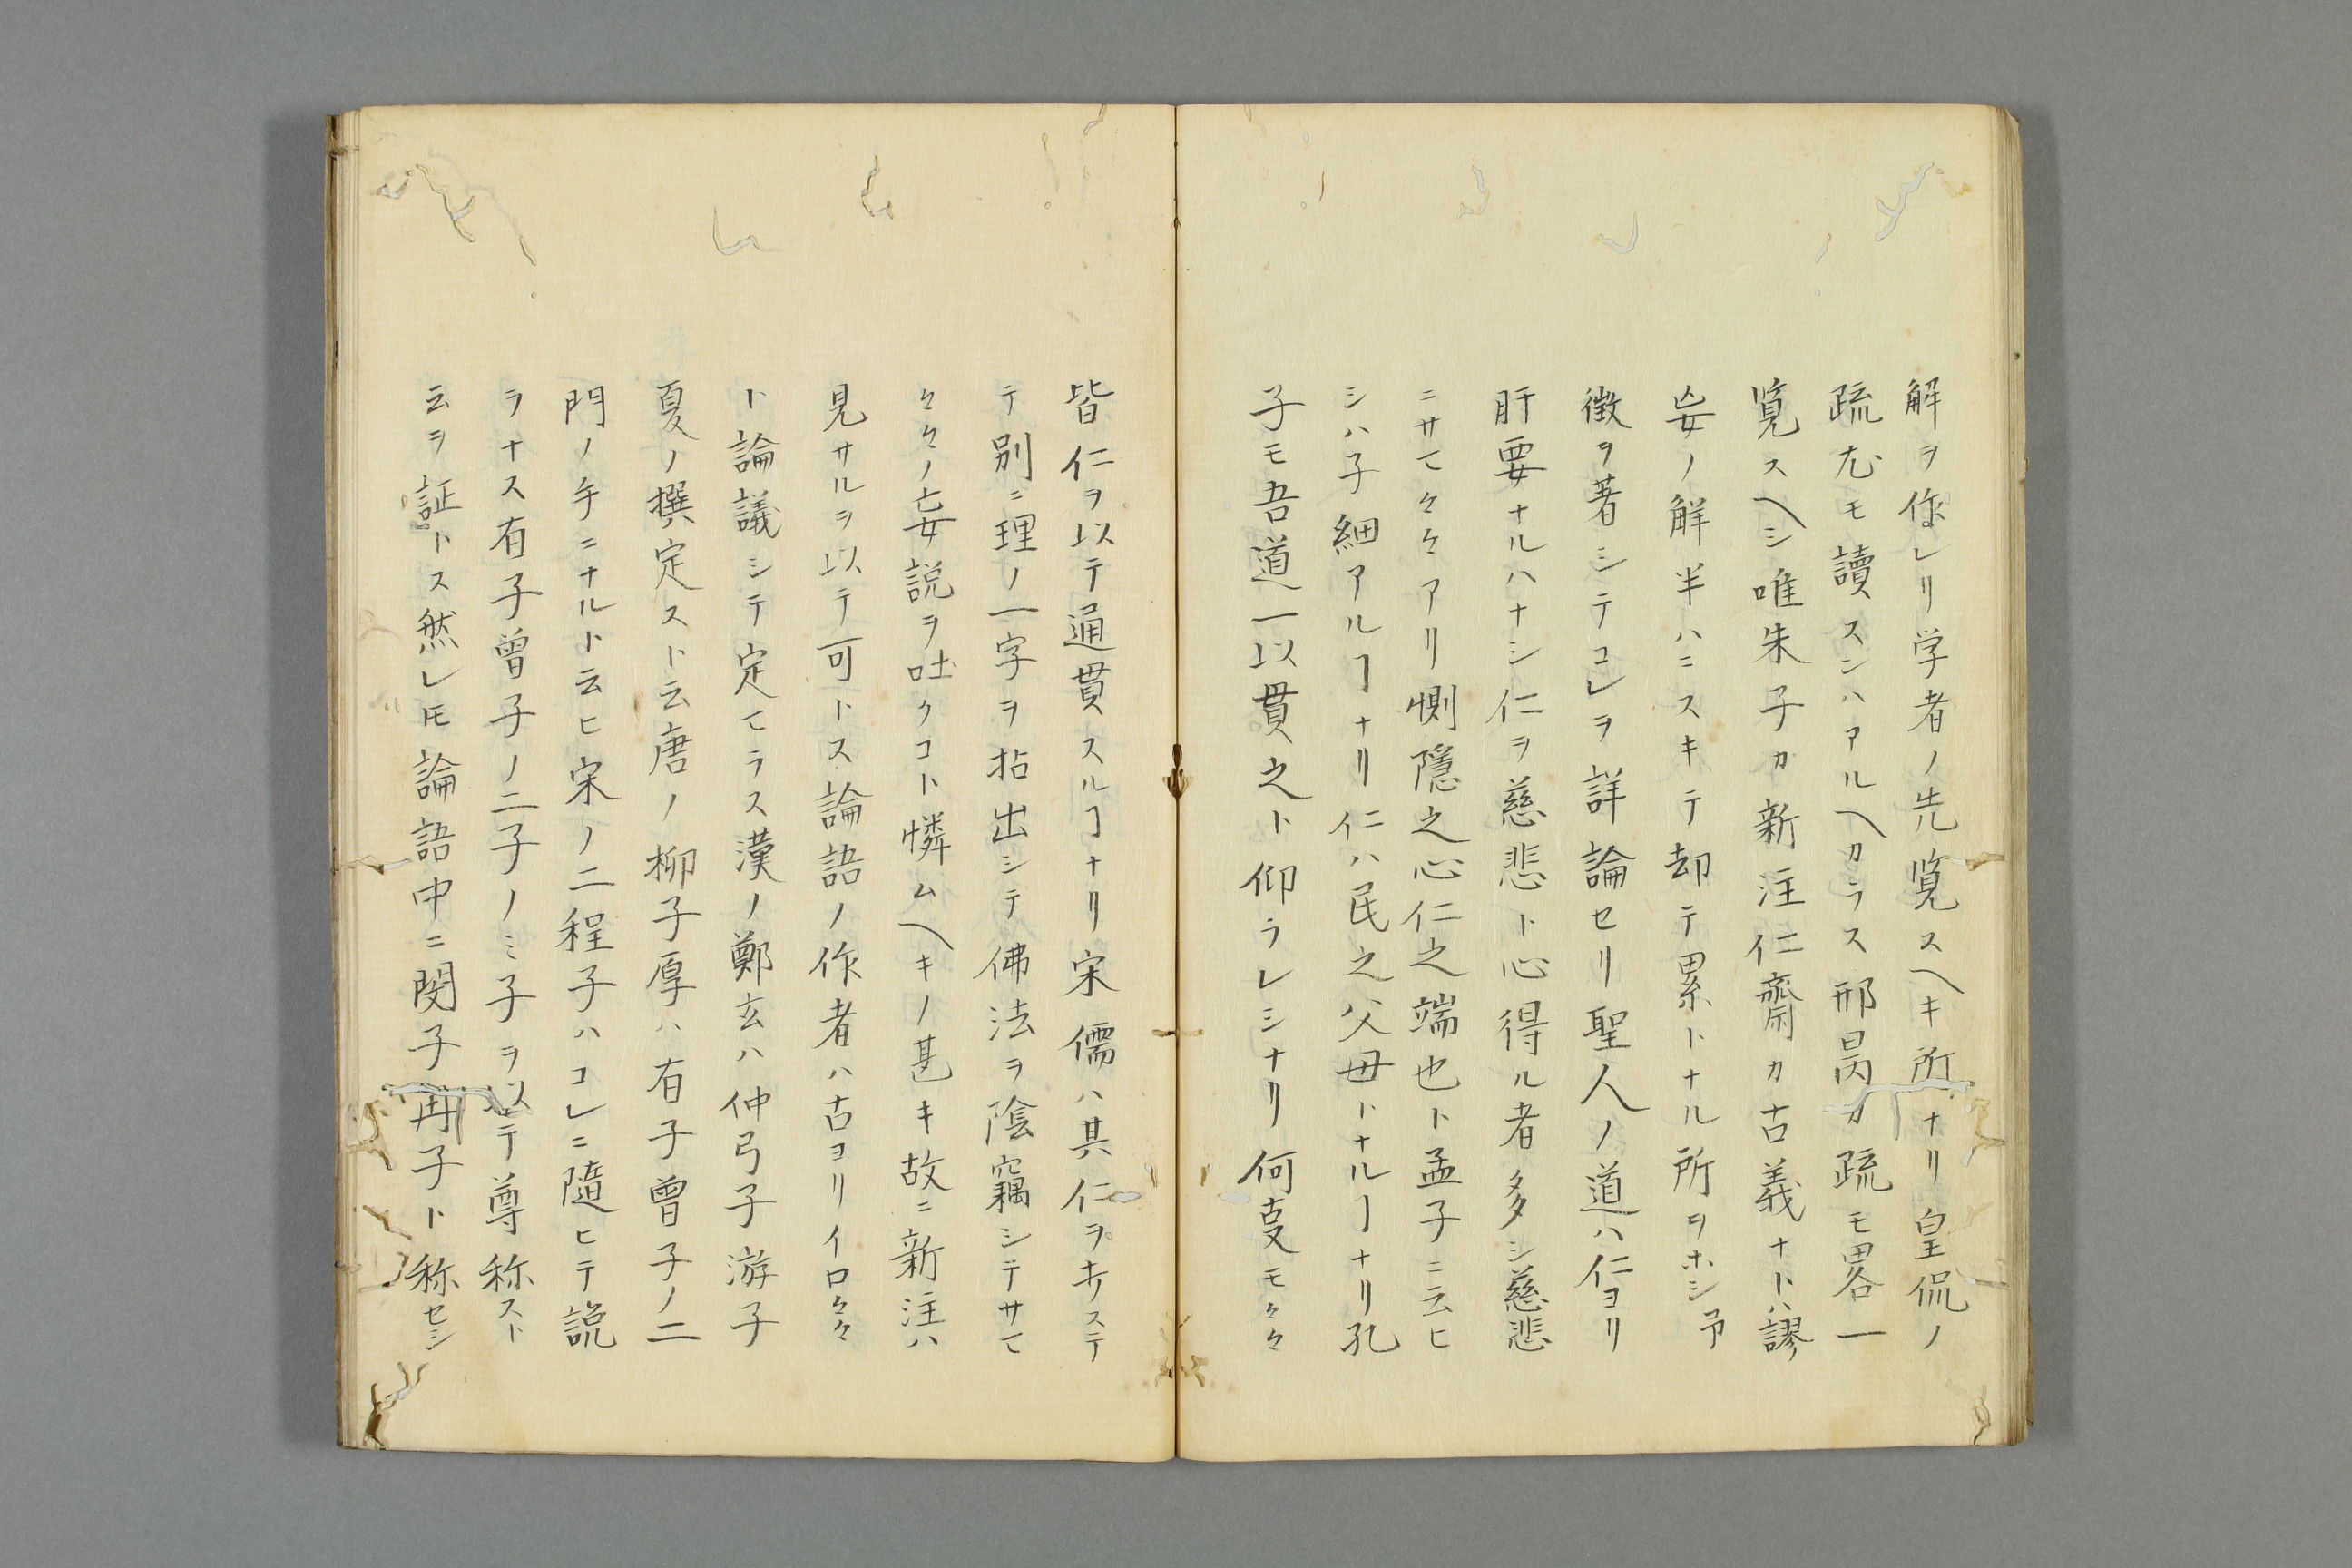 解ヲ作レリ学者ノ先覧スヘキ所ナリ皇侃ノ
疏尤モ讀スンハアルヘカラス邢昺カ疏モ畧一
覧スヘシ唯朱子カ新注仁齋カ古義ナトハ謬
妄ノ解半ハニスキテ却テ累トナル所ヲホシ予
徴ヲ著シテコレヲ詳論セリ聖人ノ道ハ仁ヨリ
肝要ナルハナシ仁ヲ慈悲ト心得ル者多シ慈悲
ニサマ々々アリ惻隱之心仁之端也ト孟子ニ云ヒ
シハ子細アルヿナリ仁ハ民之父母トナルヿナリ孔
子モ吾道一以貫之ト仰ラレシナリ何叓モ々々
皆仁ヲ以テ通貫スルヿナリ宋儒ハ其仁ヲホステ
テ別ニ理ノ一字ヲ拈出シテ佛法ヲ陰竊シテサマ
々々ノ妄説ヲ吐クコト憐ムヘキノ甚キ故ニ新注ハ
見サルヲ以テ可トス論語ノ作者ハ古ヨリイロ々々
ト論議シテ定マラス漢ノ鄭玄ハ仲弓子游子
夏ノ撰定スト云唐ノ柳子厚ハ有子曾子ノ二
門ノ手ニナルト云ヒ宋ノ二程子ハコレニ隨ヒテ説
ヲナス有子曾子ノ二子ノミ子ヲ以テ尊称スト
云ヲ証トス然レ𪜈論語中ニ閔子冉子ト称セシ